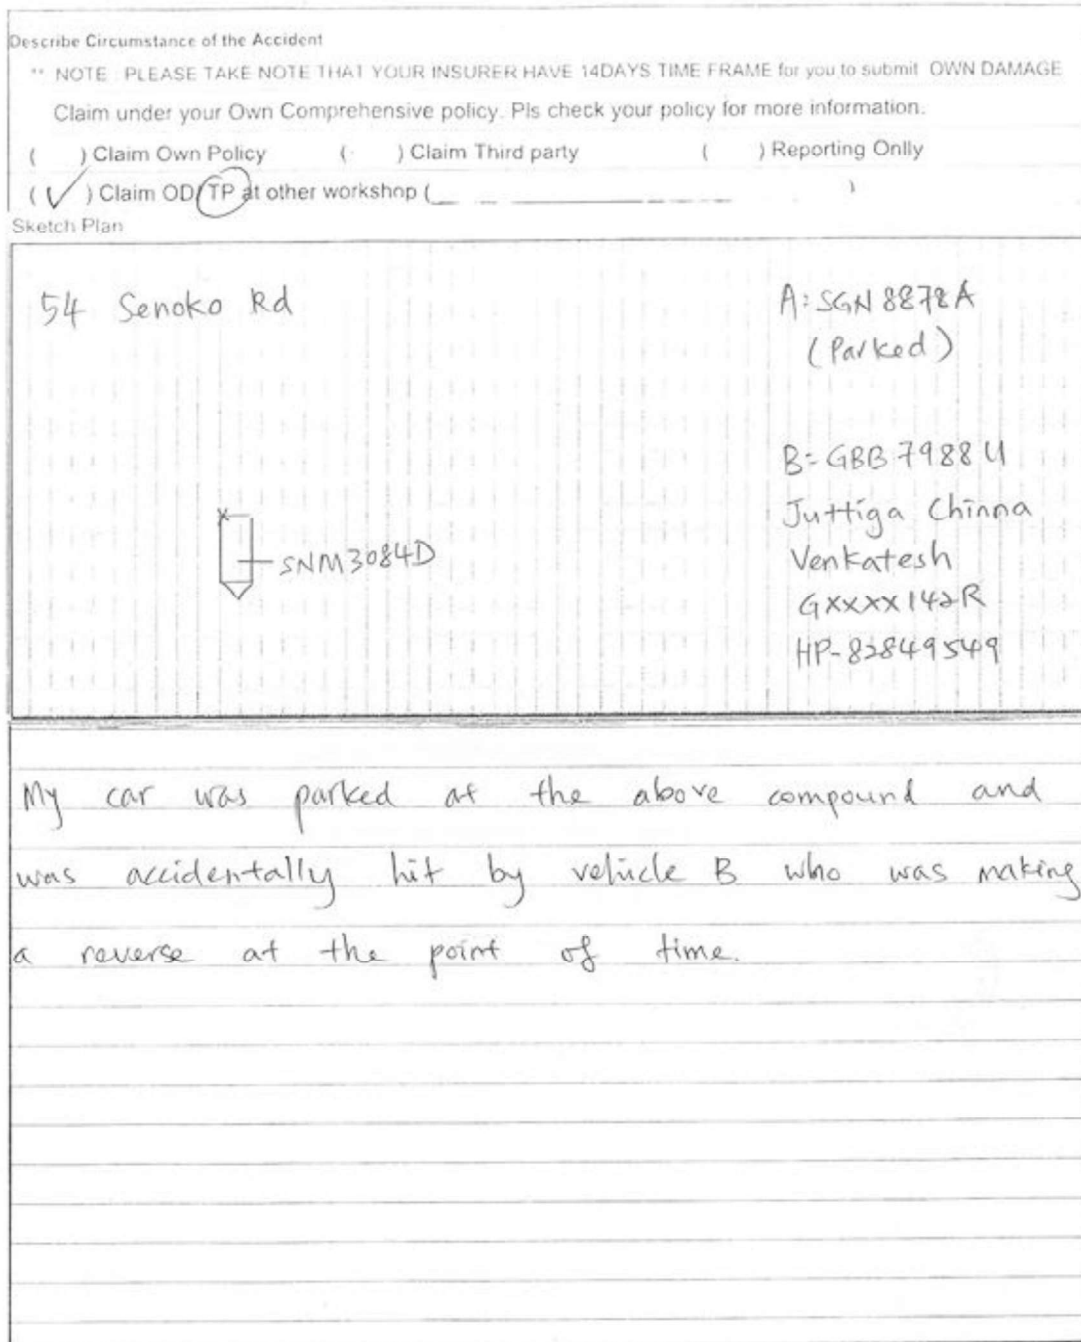 Describe Circumstance of the Accident
** NOTE : PLEASE TAKE NOTE THAT YOUR INSURER HAVE 14DAYS TIME FRAME for you to submit OWN DAMAGE
Claim under your Own Comprehensive policy. Pls check your policy for more information.
( ) Claim Own Policy ( ) Claim Third party ( ) Reporting Onlly
(✓) Claim OD/TP at other workshop ( )
Sketch Plan
54 Senoko Rd
A: SGN 8878A
(Parked)
B: GBB 7988 U
Juttiga Chinna
Venkatesh
GXXXX142R
HP-82849549
SNM3084D
My car was parked at the above compound and
was accidentally hit by vehicle B who was making
a reverse at the point of time.